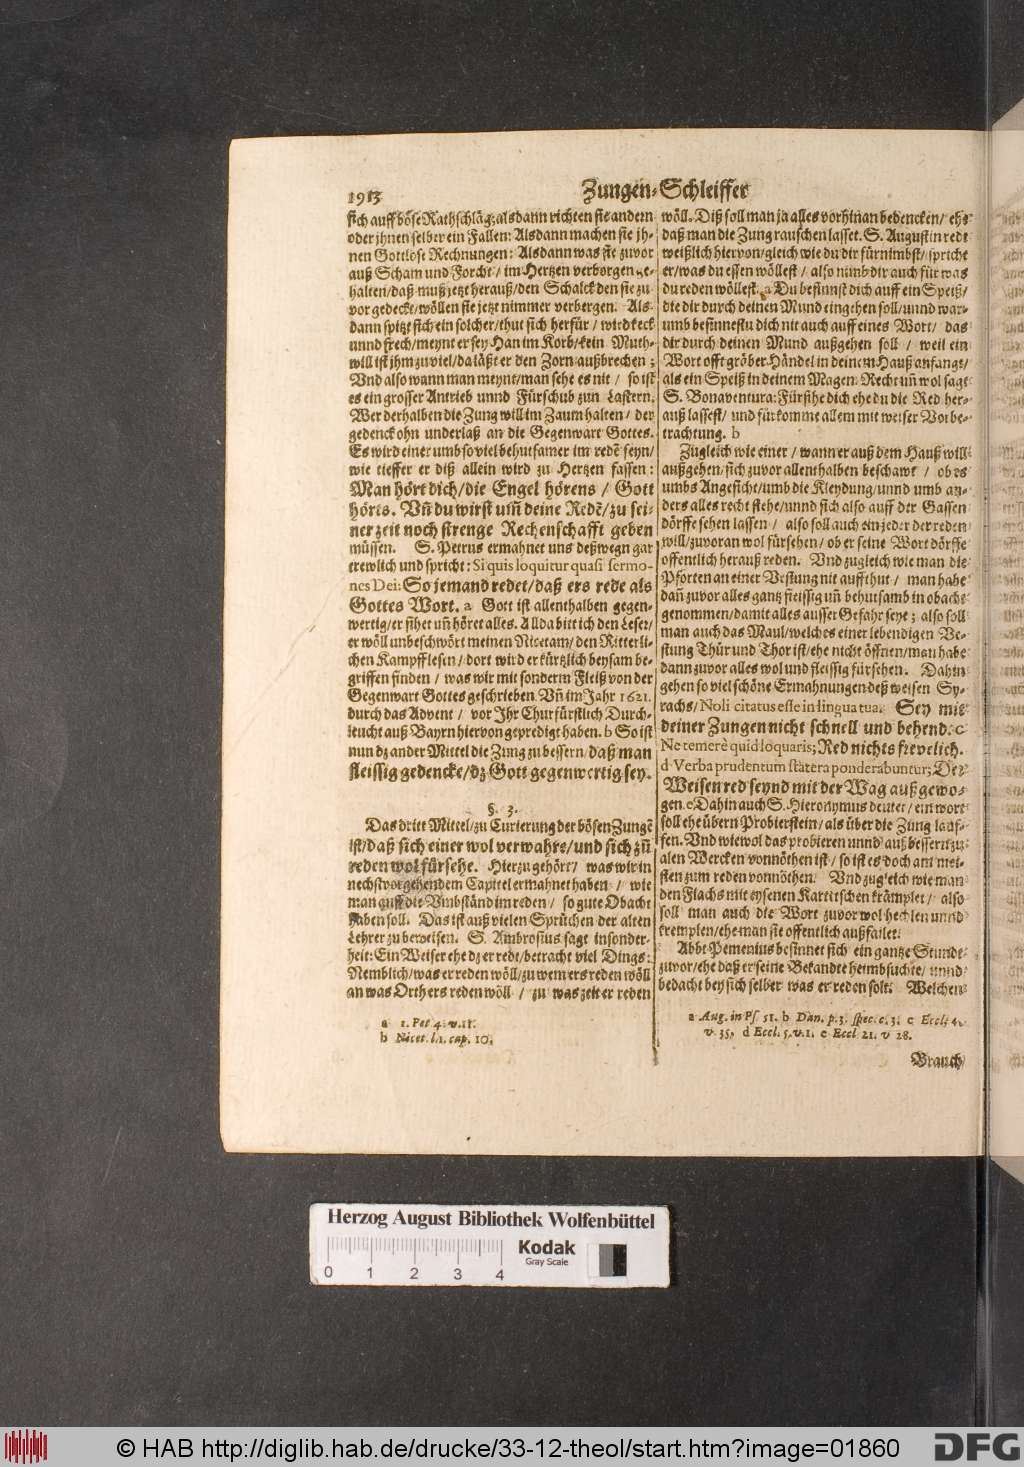 1913
Zungen-Schleiffer
sich auff böse Rathschläg: alsdann richten sie andern
oder jhnen selber ein Fallen: Alsdann machen sie jh-
nen Gottlose Rechnungen: Alsdann was sie zuvor
auß Scham und Forcht / im Hertzen verborgen ge-
halten/daß muß jetzt herauß/den Schalck den sie zu-
vor gedeckt/wöllen sie jetzt nimmer verbergen. Als-
dann spitzt sich ein solcher/thut sich herfür / wird keck
unnd frech/meynt er sey Han im Korb/kein Muth-
will ist jhm zu viel/da läßt er den Zorn außbrechen;
Vnd also wann man meynt/man sehe es nit / so ist
es ein grosser Antrieb unnd Fürschub zun Lastern.
Wer derhalben die Zung will im Zaum halten / der
gedenck ohn underlaß an die Gegenwart Gottes.
Es wird einer umb so viel behutsamer im redē seyn/
wie tieffer er diß allein wird zu Hertzen fassen:
Man hört dich/die Engel hörens / Gott
hörts. Vñ du wirst uṁ deine Redē/zu sei-
ner zeit noch strenge Rechenschafft geben
müssen. S. Petrus ermahnet uns deßwegn gar
trewlich und spricht: Si quis loquitur quasi sermo-
nes Dei: So jemand redet/daß ers rede als
Gottes Wort. a Gott ist allenthalben gegen-
wertig/er sihet uñ höret alles. Allda bitt ich den Leser/
er wöll unbeschwört meinen Nicetam/den Ritterli-
chen Kampff lesen/dort wird er kürtzlich beysam be-
griffen finden / was wir mit sonderm Fleiß von der
Gegenwart Gottes geschrieben. Vñ im Jahr 1621.
durch das Advent / vor Ihr Churfürstlich Durch-
leucht auß Bayrn hiervon gepredigt haben. b So ist
nun dz ander Mittel die Zung zu bessern/daß man
fleissig gedencke/dz Gott gegenwertig sey.
§. 3.
Das dritt Mittel/zu Curierung der bösen Zungē
ist/daß sich einer wol verwahre/und sich zū
reden wol fürsehe. Hierzu gehört/ was wir in
nechstvorgehendem Capitel ermahnet haben / wie
man auff die Vmbständ im reden / so gute Obacht
haben soll. Das ist auß vielen Sprüchen der alten
Lehrer zu beweisen. S. Ambrosius sagt insonder-
heit: Ein Weiser ehe dz er redt/betracht viel Dings:
Nemblich/was er reden wöll/zu wem ers reden wöll
an was Orth ers reden wöll / zu was zeit er reden
a 1. Pet 4. v. 11.
b Nicet. l. 1. cap. 10.
wöll. Diß soll man ja alles vorhinan bedencken/ ehe
daß man die Zung rauschen lasset. S. Augustin redt
weißlich hiervon/gleich wie du dir fürnimbst/spricht
er/was du essen wöllest / also nimb dir auch für was
du reden wöllest. a Du besinnst dich auff ein Speiß/
die dir durch deinen Mund eingehen soll/unnd war-
umb besinnestu dich nit auch auff eines Wort/ das
dir durch deinen Mund außgehen soll / weil ein
Wort offt gröber Händel in deinem Hauß anfangt/
als ein Speiß in deinem Magen. Recht uñ wol sagt
S. Bonaventura: Fürsihe dich ehe du die Red her-
auß lassest/ und fürkomme allem mit weiser Vorbe-
trachtung. b
Zugleich wie einer / wann er auß dem Hauß will
außgehen/sich zuvor allenthalben beschawt / ob es
umbs Angesicht/umb die Kleydung/unnd umb an-
ders alles recht stehe/unnd sich also auff der Gassen
dörffe sehen lassen / also soll auch ein jeder der reden
will/zuvoran wol fürsehen/ ob er seine Wort dörffe
offentlich herauß reden. Vnd zugleich wie man die
Pforten an einer Vestung nit auffthut / man habe
dañ zuvor alles gantz fleissig uñ behutsamb in obacht
genommen/damit alles ausser Gefahr seye; also soll
man auch das Maul/welches einer lebendigen Ve-
stung Thür und Thor ist/ehe nicht öffnen/man habe
dann zuvor alles wol und fleissig fürsehen. Dahin
gehen so viel schöne Ermahnungen deß weisen Sy-
rachs/Noli citatus esse in lingua tua. Sey mit
deiner Zungen nicht schnell und behend. c
Ne temerè quid loquaris; Red nichts frevelich.
d Verba prudentum statera ponderabuntur; Der
Weisen red seynd mit der Wag außgewo-
gen. e Dahin auch S. Hieronymus deutet / ein wort
soll ehe übern Probierstein/als über die Zung lauf-
fen. Vnd wiewol das probieren unnd außbessern zu
alen Wercken vonnöthen ist / so ist es doch am mei-
sten zum reden vonnöthen. Vnd zugleich wie man
den Flachs mit eysenen Kartetschen krämplet/ also
soll man auch die Wort zuvor wol hechlen unnd
kremplen/ehe man sie offentlich außfailet.
Abbt Pemenius besinnet sich ein gantze Stunde
zuvor/ehe daß er seine Bekandte heimbsuchte/ unnd
bedacht bey sich selber was er reden solt. Welchen
a Aug. in Ps. 51. b Dan. p. 3. spec. c. 3. c Eccl: 4.
v. 35. d Eccl. 5. v. 1. e Eccl. 21. v 28.
Brauch
Herzog August Bibliothek Wolfenbüttel
Kodak
Gray Scale
0 1 2 3 4
© HAB http://diglib.hab.de/drucke/33-12-theol/start.htm?image=01860
DFG